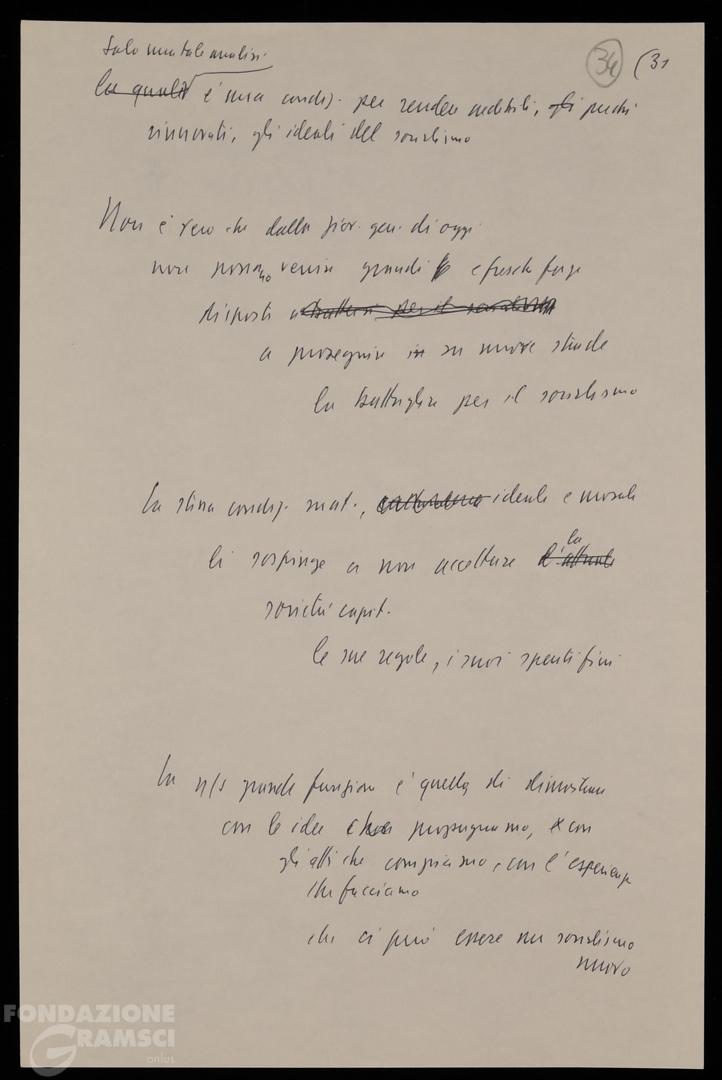 Solo una tale analisi
34 (31
la quale è una condiz. per rendere credibili, perché
rinnovati, gli ideali del socialismo
Non è vero che dalla giov. gen. di oggi
non possano venire grandi e fresche forze
disposti a battersi per il socialismo
a proseguire in su nuove strade
la battaglia per il socialismo
La stessa condiz. mat., ideale e morale
li sospinge a non accettare l'attuale la
società capit.
le sue regole, i suoi spenti fini
La n/s grande funzione è quella di dimostrare
con le idee che propugnamo, con
gli atti che compiamo, con l'esperienza
che facciamo
che ci può essere un socialismo
nuovo
FONDAZIONE
GRAMSCI
onlus